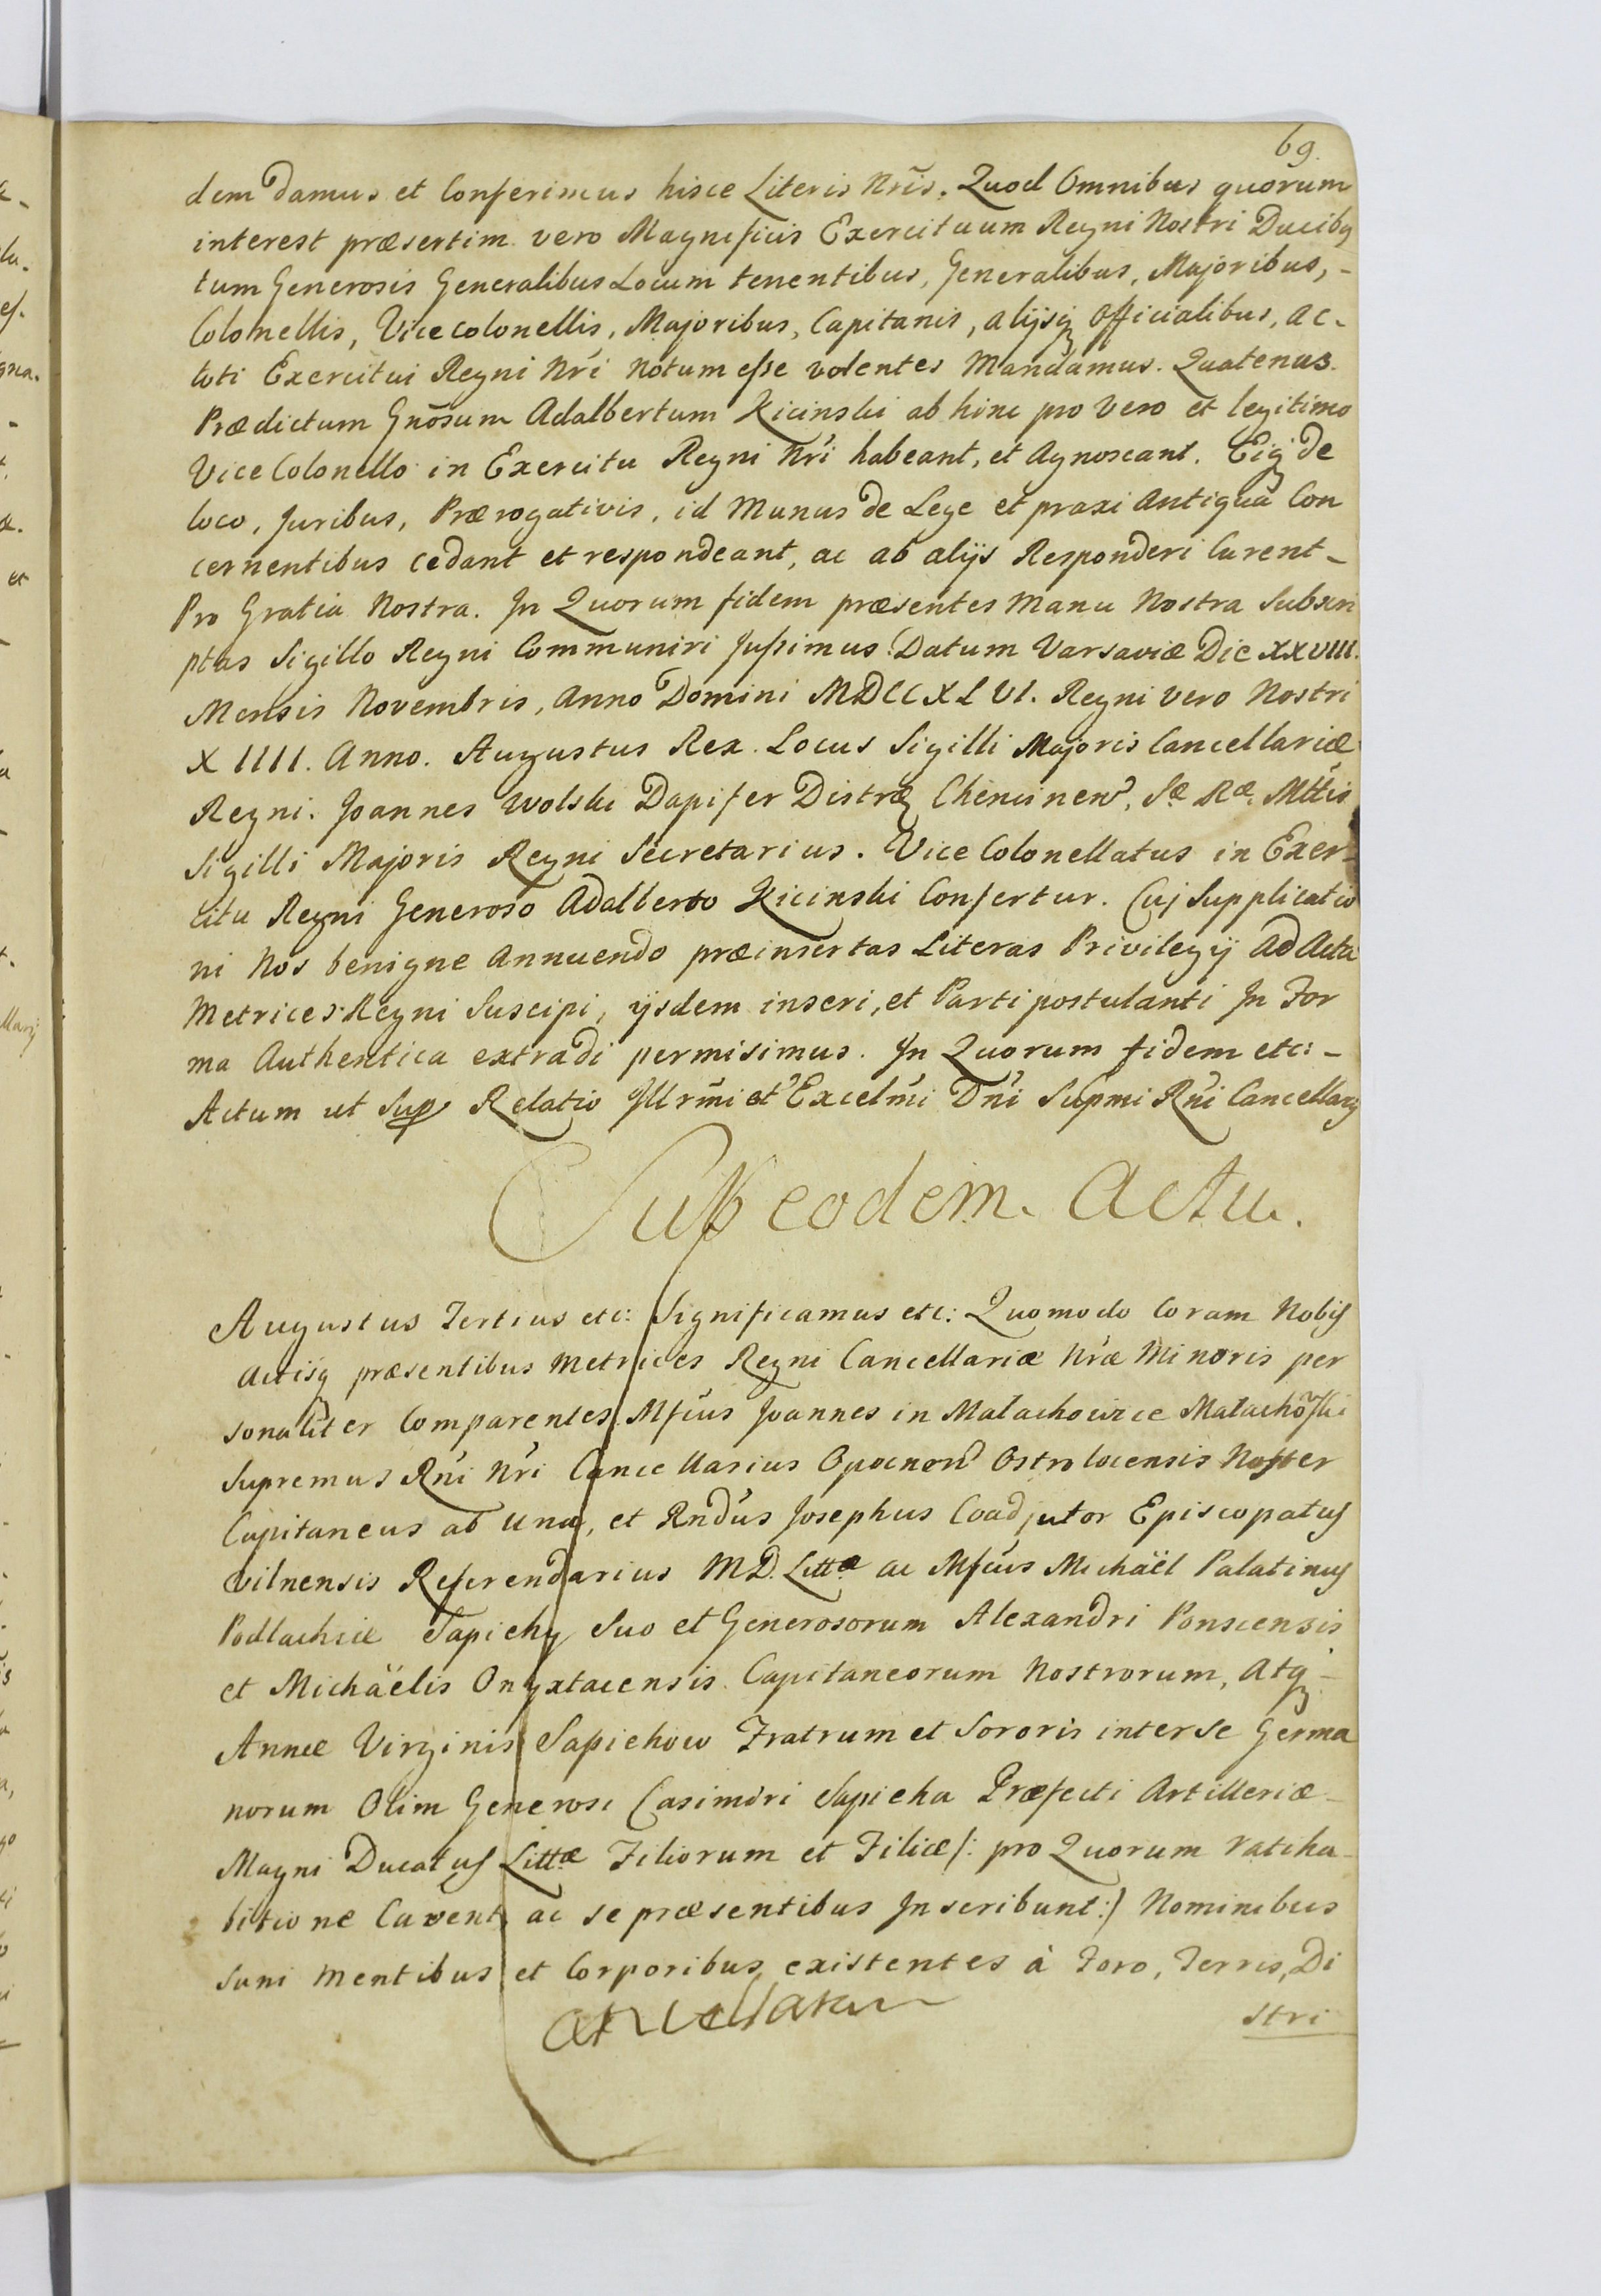 69.
dem damus et Conferimus hisce Literis Nris. Quod Omnibus quorum
interest præsertim vero Magnificis Exercituum Regni Nostri Ducibq
tum Generosis Generalibus Locum tenentibus, Generalibus, Majoribus, -
Colonellis, Vice colonellis, Majoribus, Capitanis, alijsq Officialibus, ac -
toti Exercitui Regni Nri notum esse volentes Mandamus. Quatenus.
Prædictum Gnosum Adalbertum Kicinski ab hinc pro Vero et legitimo
Vice Colonello in Exercitu Regni Nri habeant, et Agnoscant. Eiq de
loco, Juribus, Prærogativis, id Munus de Lege et praxi Antiqua Con
cernentibus cedant et respondeant, ac ab alijs Responderi Curent -
Pro Gratia Nostra. In Quorum fidem præsentes Manu Nostra Subscri
ptas Sigillo Regni Communiri Jussimus. Datum Varsaviæ Die XXVIII.
Mensis Novembris, Anno Domini MDCCXLVI. Regni vero Nostri
XIIII. Anno. Augustus Rex. Locus Sigilli Majoris Cancellariæ
Regni. Joannes Wolski Dapifer Districtus Chencinen, Sæ Ræ. Mttis
Sigilli Majoris Regni Secretarius. Vice Colonellatus in Exer-
citu Regni Generoso Adalberto Kicinski Confertur. Cuj Supplicatio
ni Nos benigne Annuendo præinsertas Literas Privilegij Ad Acta
Metrices Regni Suscipi, ijsdem inseri, et Parti postulanti In For
ma Authentica extradi permisimus. In Quorum fidem etc: -
Actum ut Sup Relatio Illrmi et Excelmi Dni Supmi Rni Cancellarij
Sub eodem. Actu.
Augustus Tertius etc: Significamus etc: Quomodo Coram Nobis
Actisq præsentibus Metrices Regni Cancellariæ Nræ Minoris per
sonaliter Comparentes Mfcus Joannes in Małachowice Małachowski
Supremus Rni Nri Cancellarius Opocnen Ostrolocensis Noster
Capitaneus ab Una, et Rndus Josephus Coadjutor Episcopatus
Vilnensis Referendarius M.D. Littæ ac Mfcus Michaël Palatinus
Podlachiæ Sapiehy Suo et Generosorum Alexandri Ponscensis
et Michäelis Onyxtacensis Capitaneorum Nostrorum, Atq -
Annæ Virginis Sapiehow Fratrum et Sororis inter se Germa
norum Olim Generosi Casimiri Sapieha Præfecti Artilleriæ -
Magni Ducatus Littæ Filiorum et Filiæ /: pro Quorum ratiha -
bitione Cavent, ac se præsentibus Inscribunt :/ Nominibus
Sani Mentibus et Corporibus existentes à Foro, Terris, Di
stri